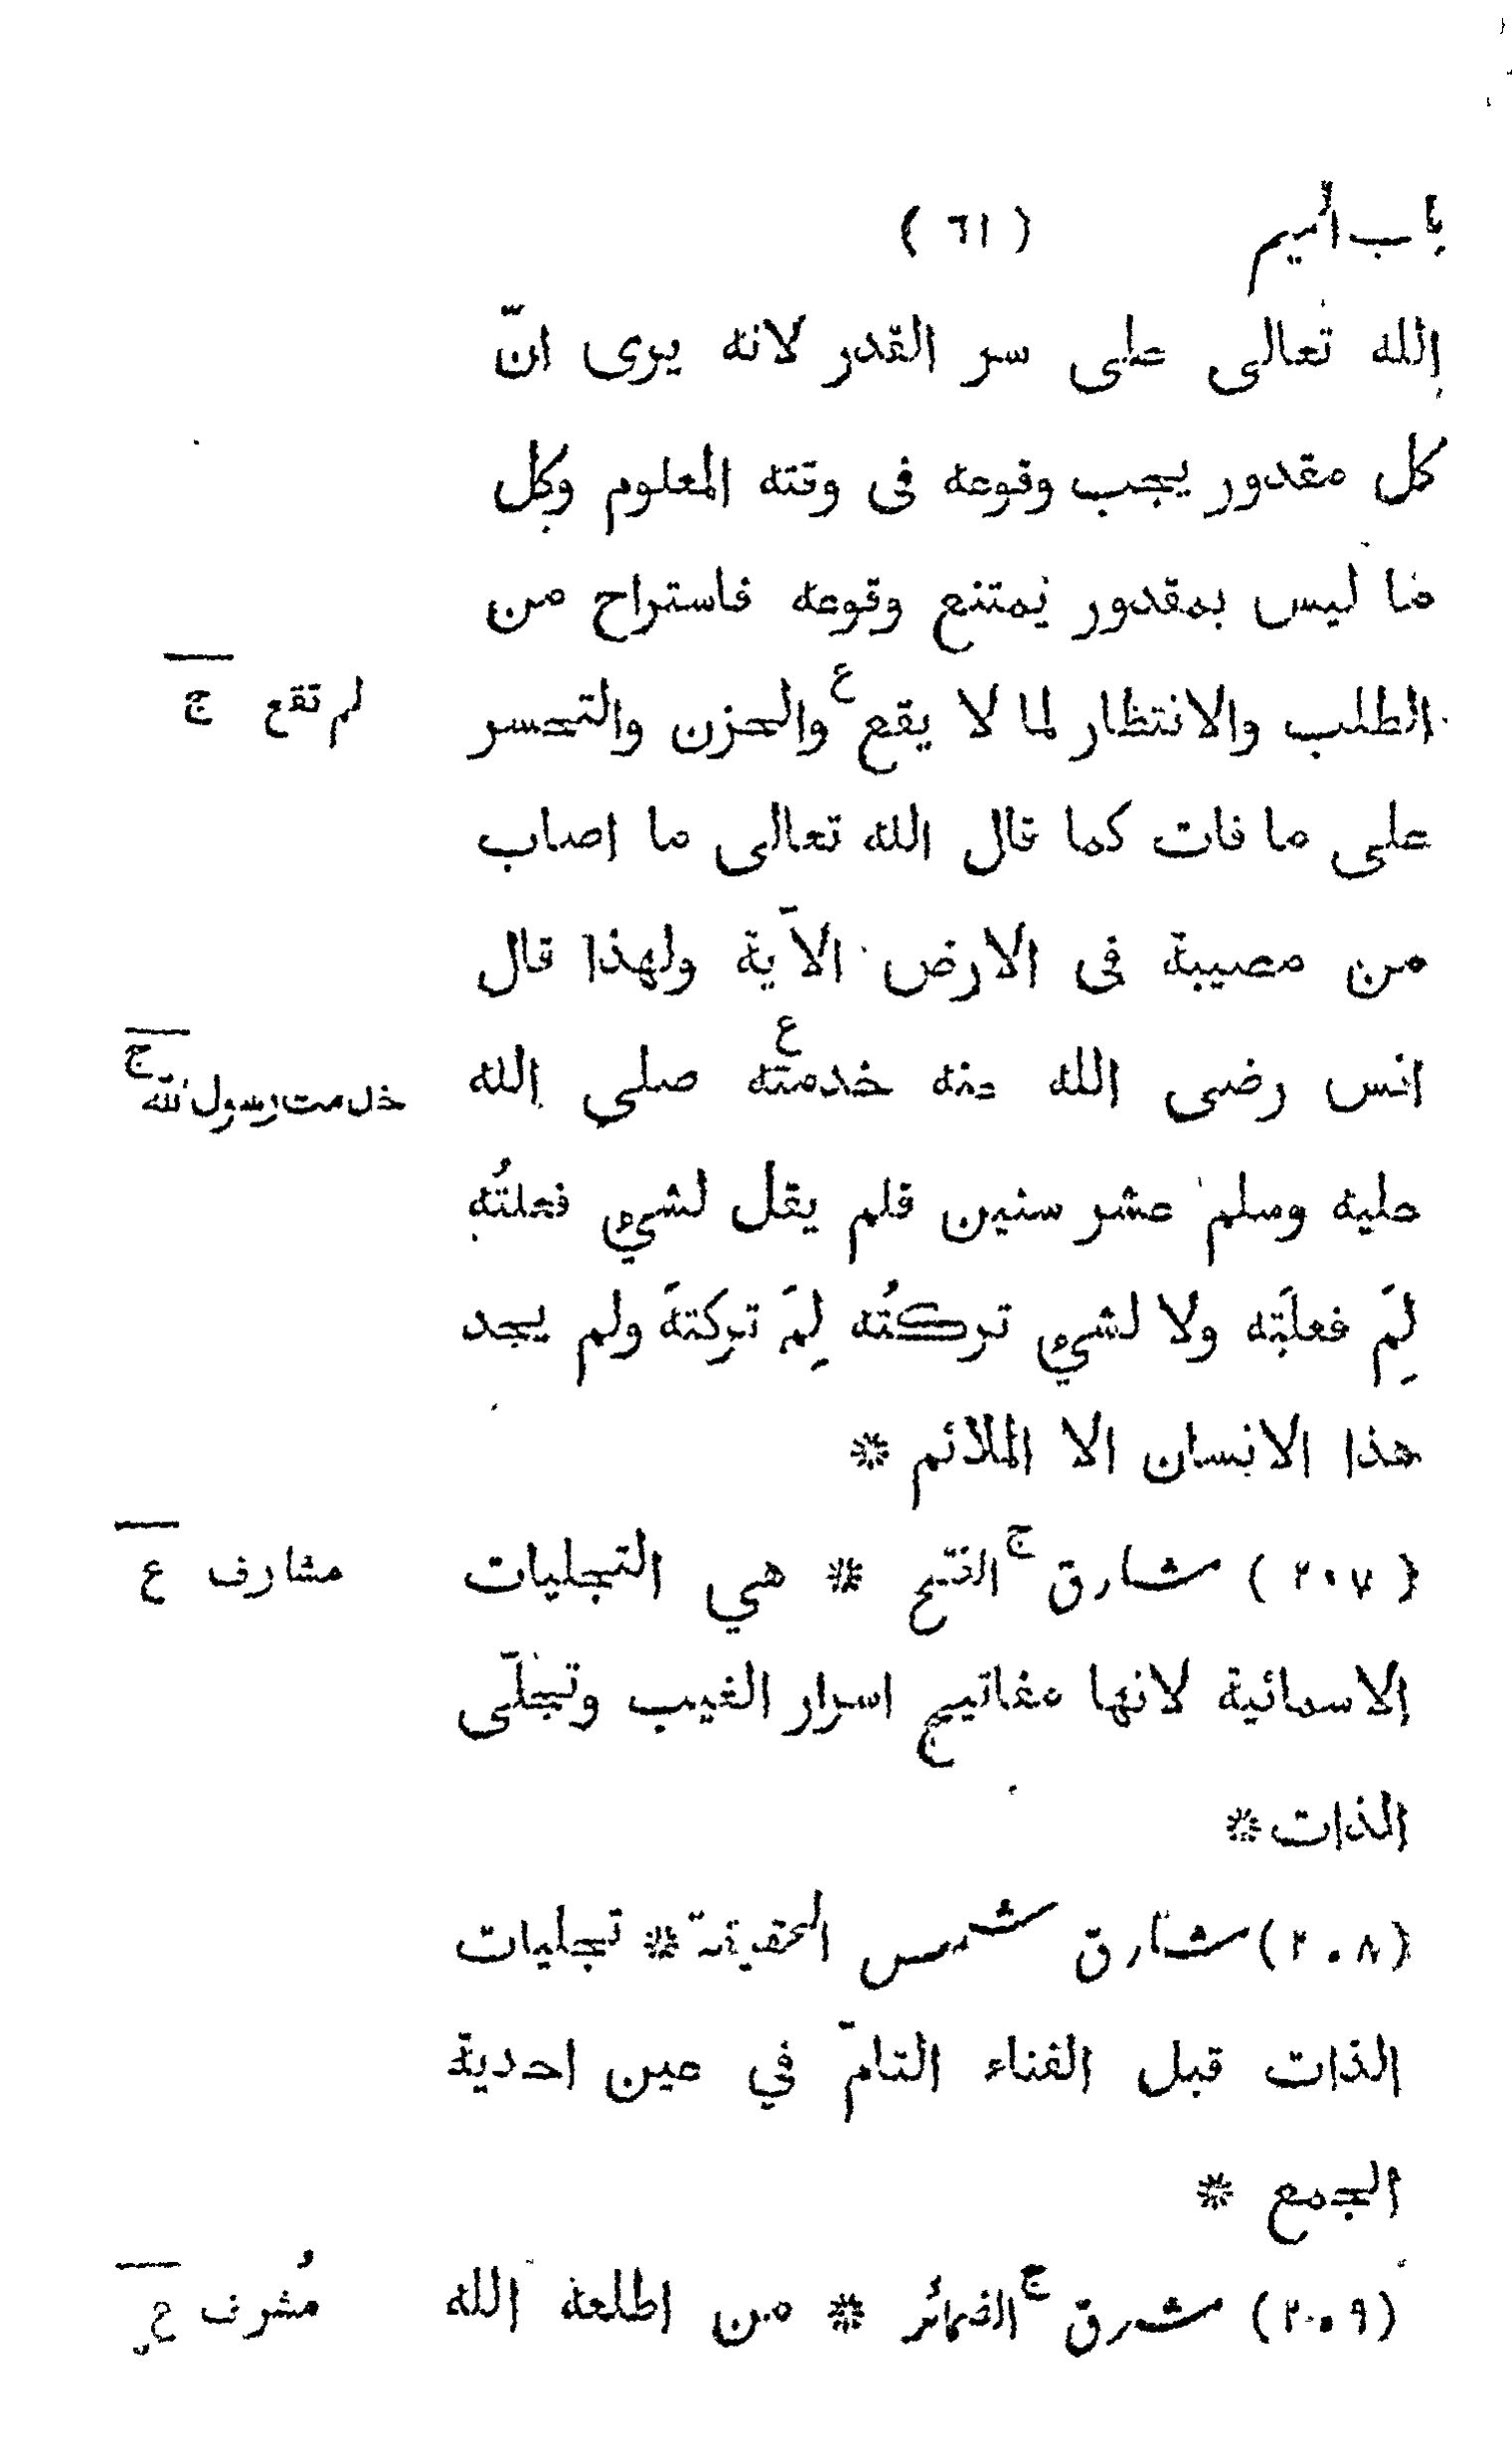 باب الميم ( ٦١ )
الله تعالى على سر القدر لانه يرى انّ
كل مقدور يجب وقوعه فى وقته المعلوم وكل
ما ليس بمقدور يمتنع وقوعه فاستراح من
الطلب والانتظار لما لا يقع ع والحزن والتحسر
لم تقع ج
على ما فات كما قال الله تعالى ما اصاب
من مصيبة فى الارض الآية ولهذا قال
انس رضى الله عنه خدمته ع صلى الله
خدمت رسول الله ج
عليه وسلم عشر سنين فلم يقل لشيء فعلتُه
لِمَ فعلتَه ولا لشيء تركتُه لِمَ تركتَه ولم يجد
هذا الانسان الا الملائم *
( ٢٠٧ ) مشارق ج الفتح * هي التجليات
مشارف ع
الاسمائية لانها مفاتيح اسرار الغيب وتجلّى
الذات *
( ٢٠٨ ) مشارق شمس الحقيقة * تجليات
الذات قبل الفناء التامّ في عين احدية
الجمع *
( ٢٠٩ ) مشرق ج الضمائر * من اطلعه الله
مُشرف ع